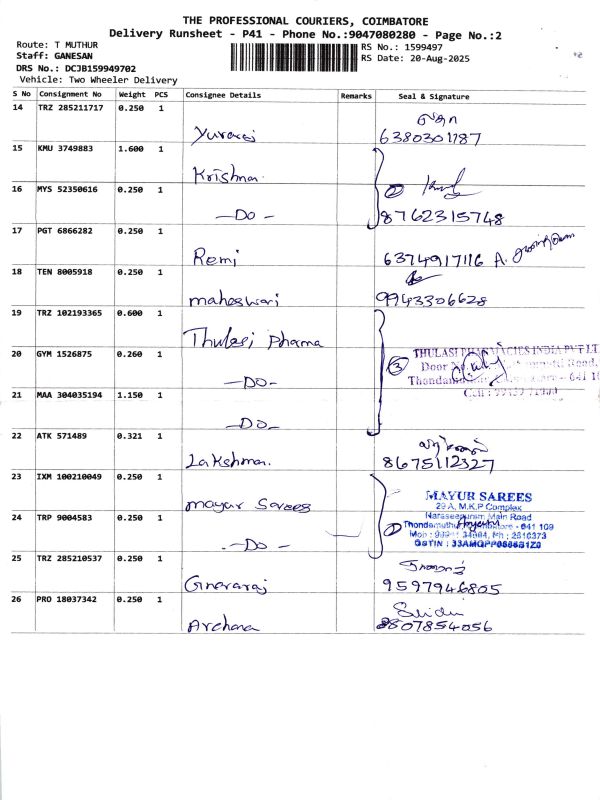 THE PROFESSIONAL COURIERS, COIMBATORE
Delivery Runsheet - P41 - Phone No.:9047080280 - Page No.:2
Route: T MUTHUR
Staff: GANESAN
DRS No.: DCJB159949702
Vehicle: Two Wheeler Delivery
RS No.: 1599497
RS Date: 20-Aug-2025
S No Consignment No Weight PCS Consignee Details Remarks Seal & Signature
14 TRZ 285211717 0.250 1
Yuvaraj 6380301187
15 KMU 3749883 1.600 1
Krishna
16 MYS 52350616 0.250 1
2
-Do- 8762315748
17 PGT 6866282 0.250 1
Remi 6374917116 A.
18 TEN 8005918 0.250 1
maheswari 9943306628
19 TRZ 102193365 0.600 1
Thulasi pharma
20 GYM 1526875 0.260 1
3 THULASI PHARMACIES INDIA PVT LT
Door Road,
-Do- Thondamu - 641 1
21 MAA 304035194 1.150 1
-Do-
22 ATK 571489 0.321 1
Lakshma. 8675112327
23 IXM 100210049 0.250 1
mayur Sarees
MAYUR SAREES
29 A, M.K.P Complex
Naraseepuram Main Road
24 TRP 9004583 0.250 1
Thondamuthur - 641 109
-Do-
25 TRZ 285210537 0.250 1
Gnevaraj 9597946805
26 PRO 18037342 0.250 1
Archana 8807854056